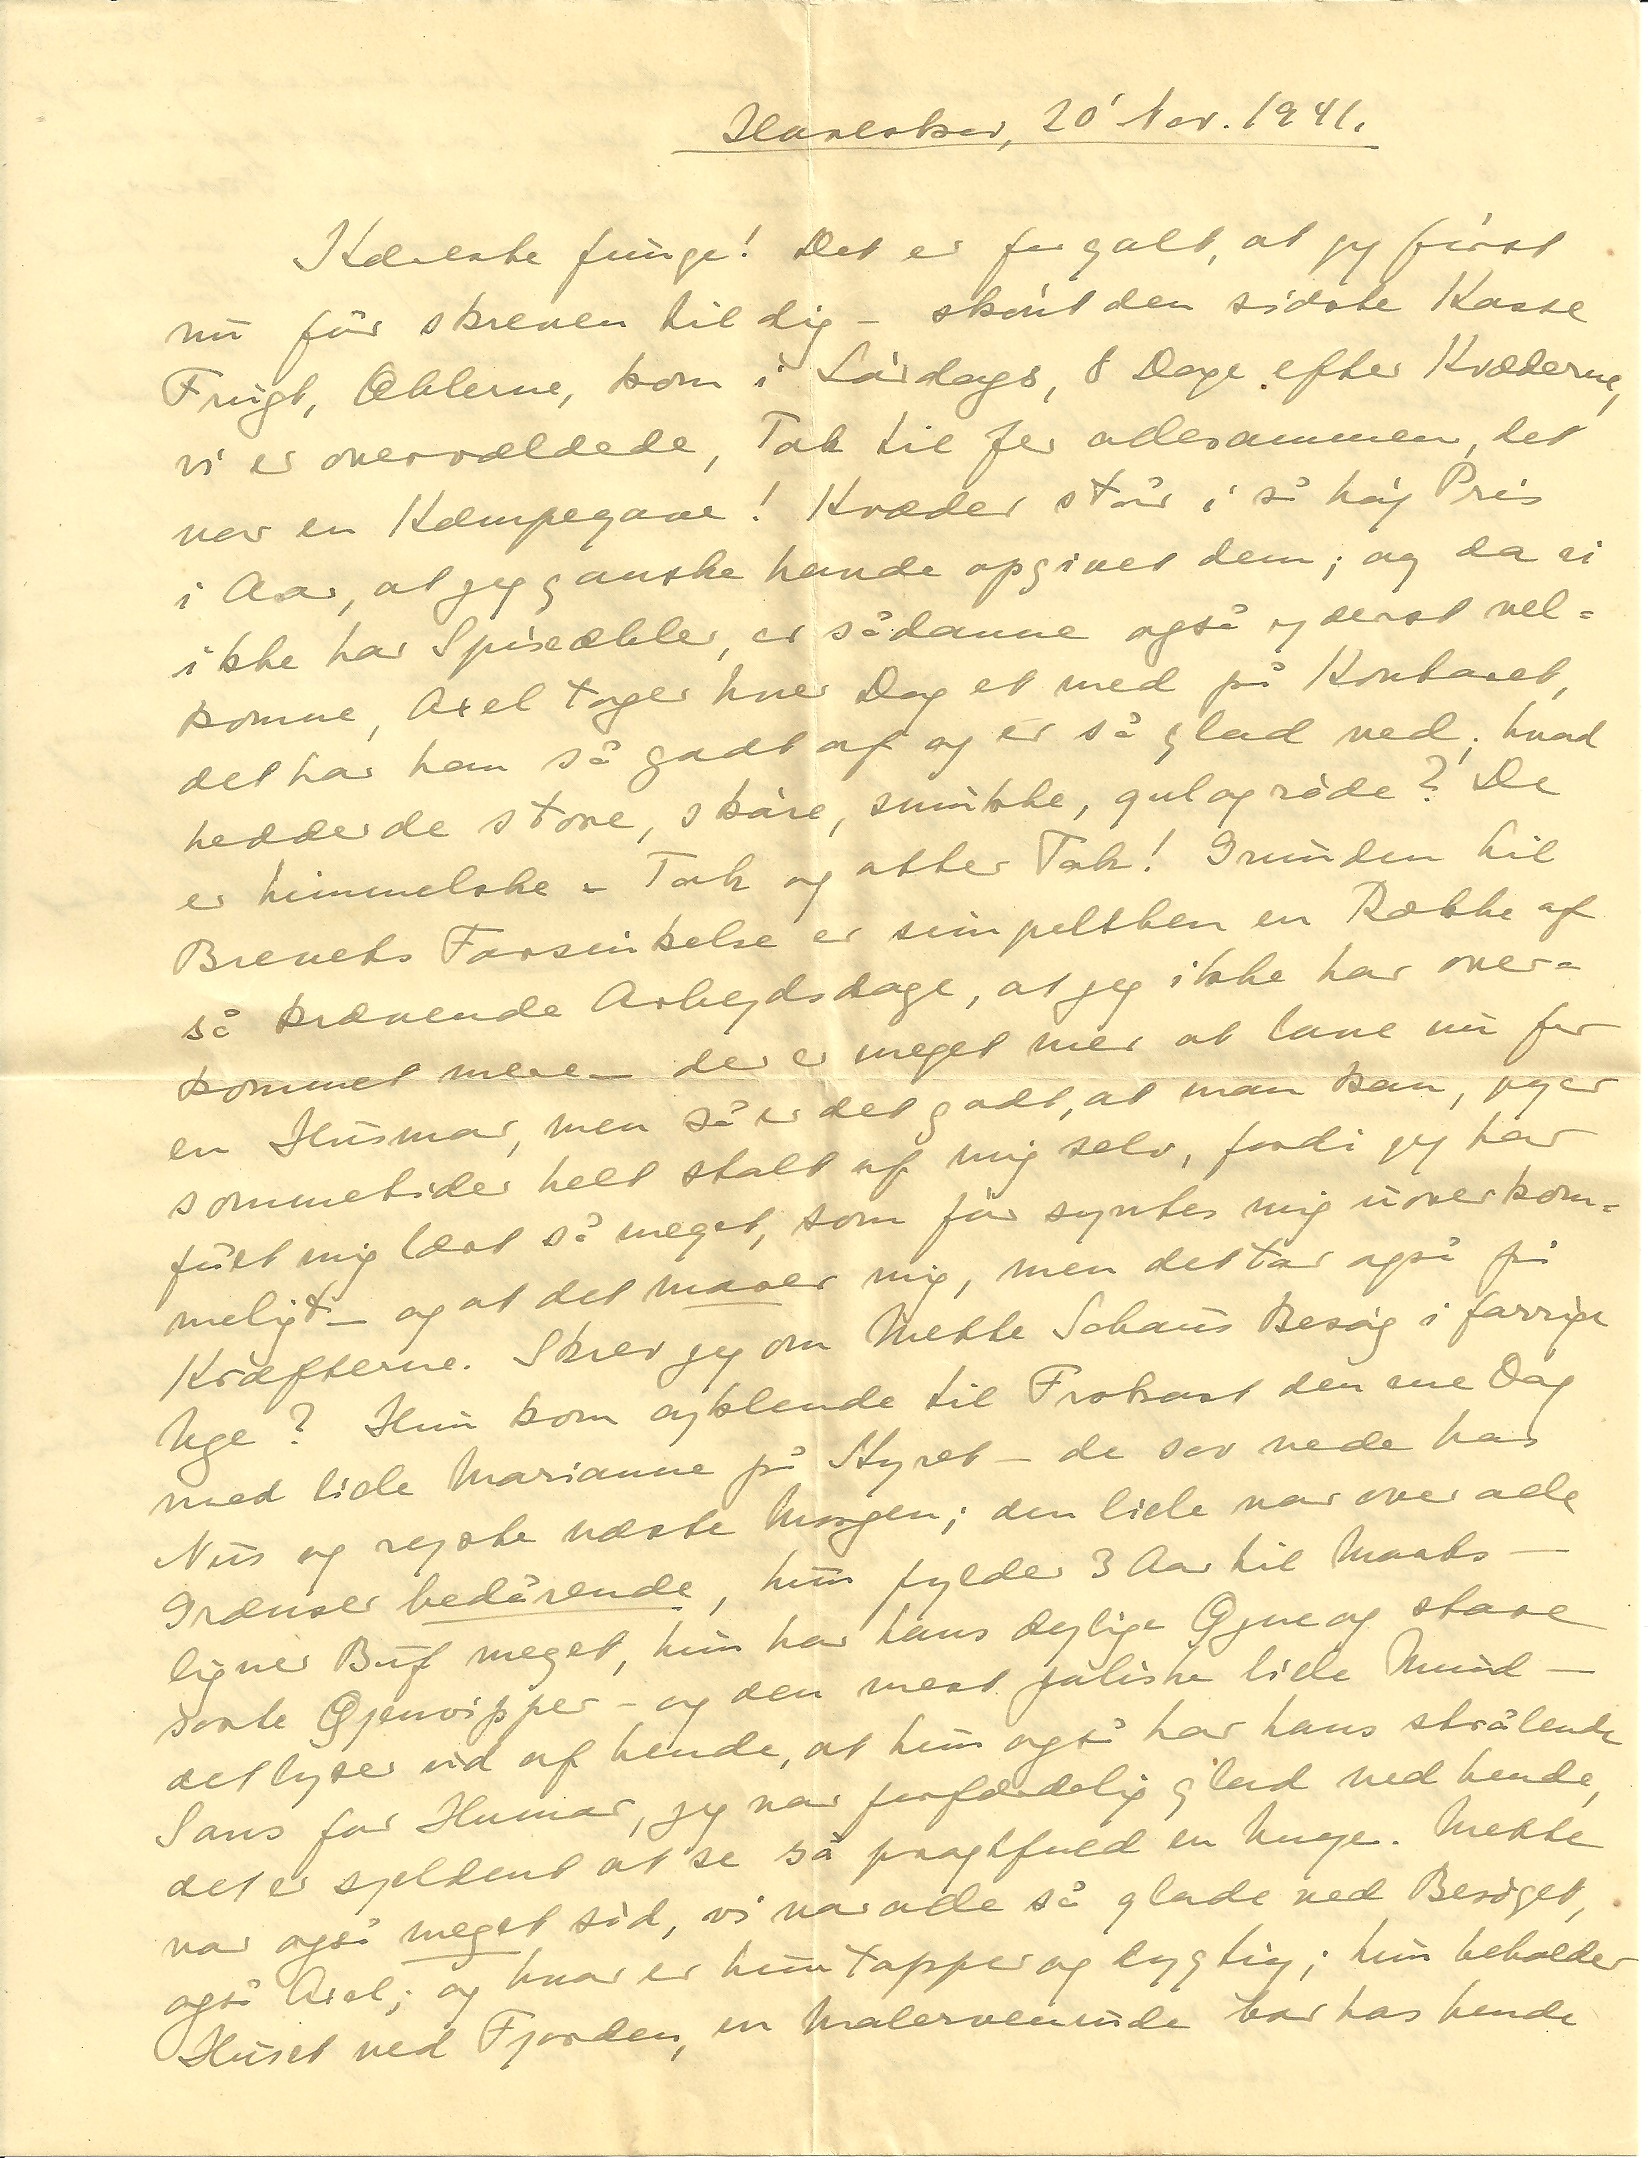 Havlokker, 20' Nov. 1941.
Kæreste Junge! Det er for galt, at jeg først
nu får skreven til dig – skönt den sidste Kasse
Frugt, Æblerne, kom i Lördags, 8 Dage efter Kvæderne,
vi er overvældede, Tak til Jer allesammen, det
var en Kæmpegave! Kvæder står i så höj Pris
i Aar, at jeg ganske havde opgivet dem; og da vi
ikke har Spiseæbler, er sådanne også yderst vel=
komne, Axel tager hver Dag et med på Kontoret,
det har han så godt af og er så glad ved; hvad
hedder de store, skäre, smukke, gul og röde? De
er himmelske – Tak og atter Tak! Grunden til
Brevets Forsinkelse er simpelthen en Række af
så krævende Arbejdsdage, at jeg ikke har over=
kommet mere – der er meget mer at lave nu for
en Husmor, men så er det godt, at man kan, jeg er
sommetider helt stolt af mig selv, fordi jeg har
fået mig lært så meget, som för syntes mig uoverkom=
meligt – og at det morer mig, men det tar også på
Kræfterne. Skrev jeg om Mette Schous Besög i forrige
Uge? Hun kom cyklende til Frokost den ene Dag
med lide Marianne på Styret – de sov nede hos
Nus og rejste næste Morgen; den lide var over alle
Grænser bedårende, hun fylder 3 Aar til Marts –
ligner Buf meget, hun har hans dejlige Øjne og store
sorte Øjenvipper – og den mest joliske lide Mund –
det lyser ud af hende, at hun også har hans strålende
Sans for Humor, jeg var forfærdelig glad ved hende,
det er sjeldent at se så pragtfuld en Unge. Mette
var også meget söd, vi var alle så glade ved Besöget,
også Axel; og hvor er hun tapper og dygtig; hun beholder
Huset ved Fjorden, en Malerveninde bor hos hende